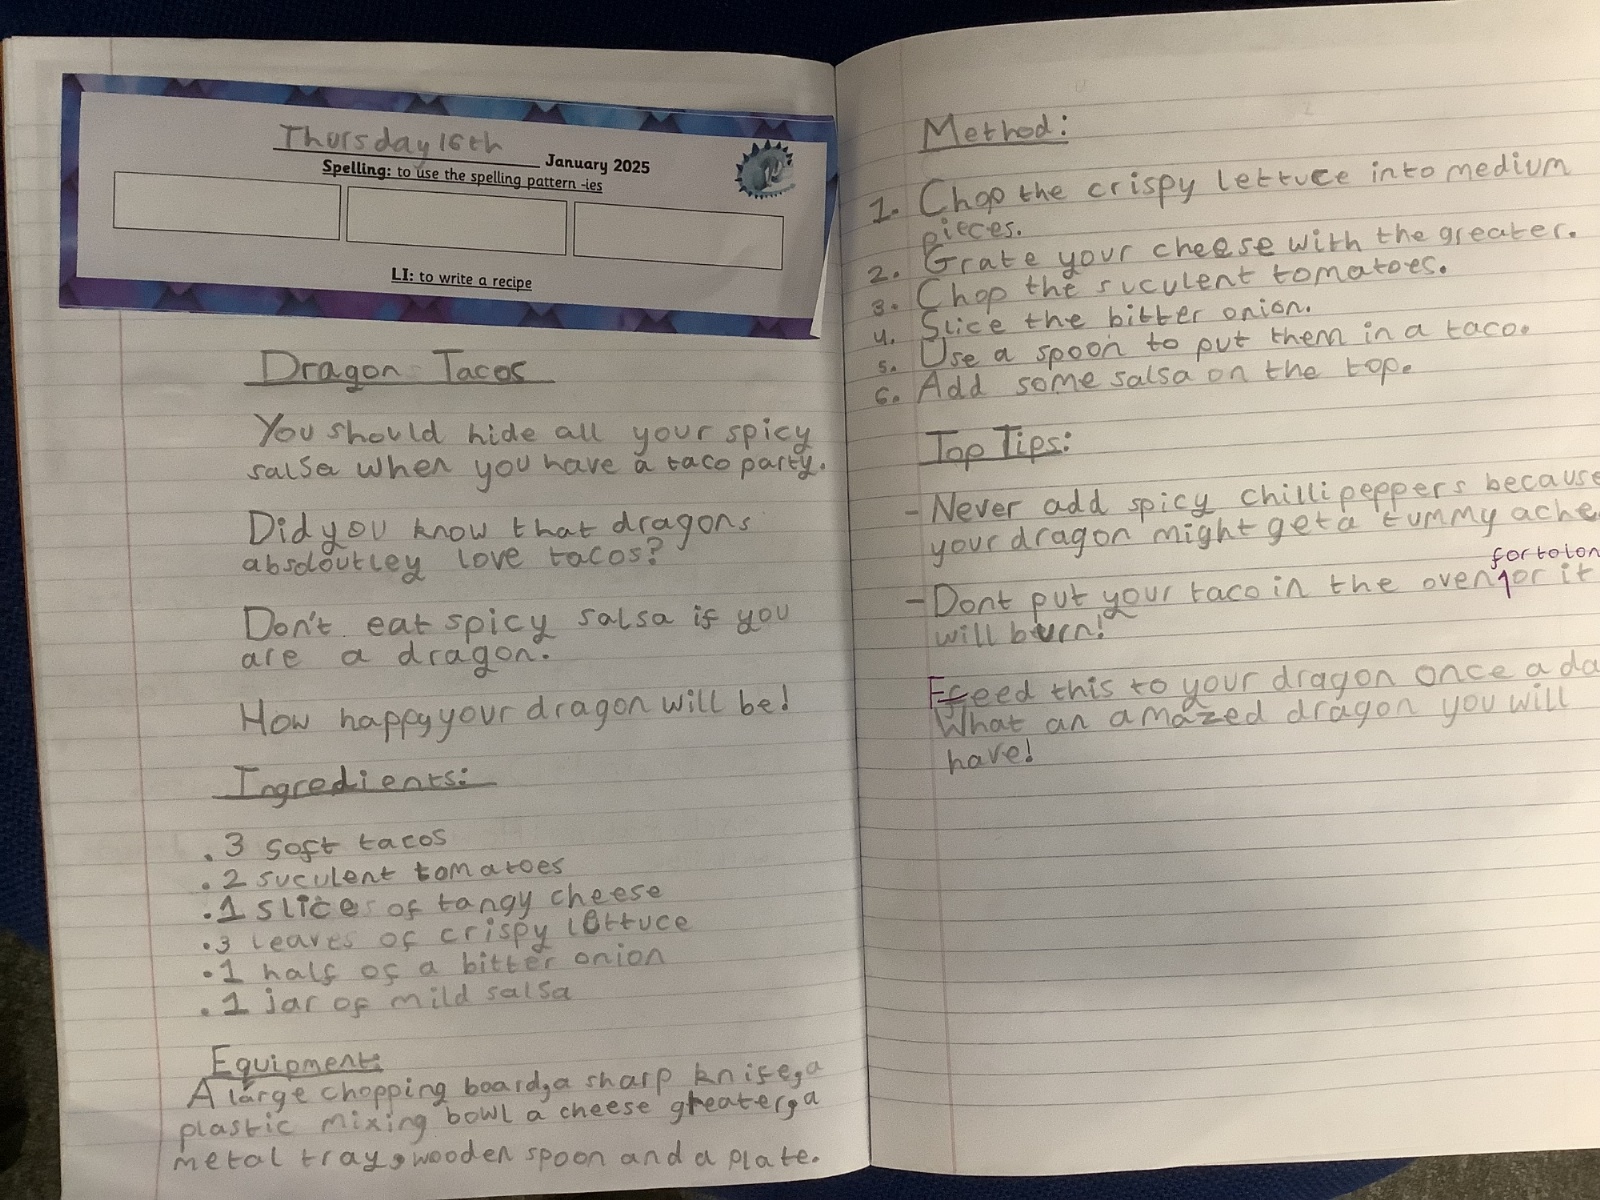 Thursday 16th January 2025
Spelling: to use the spelling pattern -ies
LI: to write a recipe
Dragon Tacos
You should hide all your spicy
salsa when you have a taco party.
Did you know that dragons
absdoutley love tacos?
Don't eat spicy salsa if you
are a dragon.
How happy your dragon will be!
Ingredients:
. 3 soft tacos
. 2 suculent tomatoes
. 1 slices of tangy cheese
. 3 leaves of crispy lettuce
. 1 half of a bitter onion
. 1 jar of mild salsa
Equipment:
A large chopping board, a sharp knife, a
plastic mixing bowl a cheese greater, a
metal tray, wooden spoon and a plate.
Method:
1. Chop the crispy lettuce into medium
pieces.
2. Grate your cheese with the greater.
3. Chop the suculent tomatoes.
4. Slice the bitter onion.
5. Use a spoon to put them in a taco.
6. Add some salsa on the top.
Top Tips:
- Never add spicy chilli peppers because
your dragon might get a tummy ache
for to lon
- Dont put your taco in the oven or it
will burn!
Feed this to your dragon once a da
What an amazed dragon you will
have!